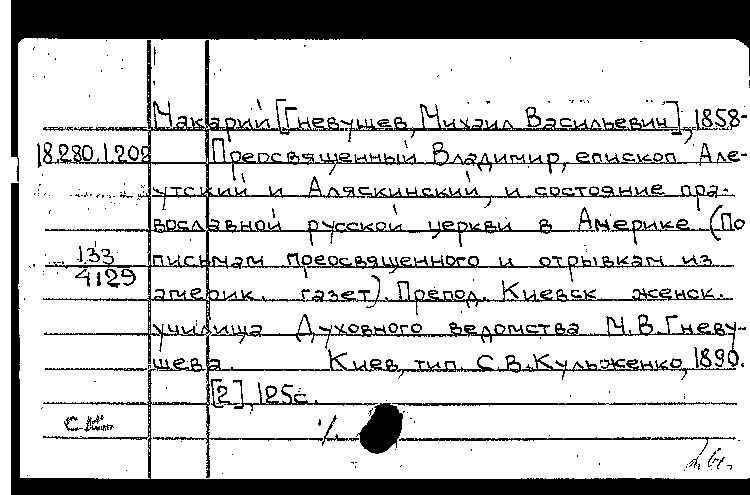 Макарий [Гневушев, Михаил Васильевич], 1858-
18.280.1.202 Преосвященный Владимир, епископ Але-
утский и Аляскинский, и состояние пра-
вославной русской церкви в Америке (По
133 письмам преосвященного и отрывкам из
4129
америк. газет). Препод. Киевск женск.
училища Духовного ведомства М.В.Гневу-
шева. Киев, тип. С.В.Кульженко, 1890.
[2], 125с.